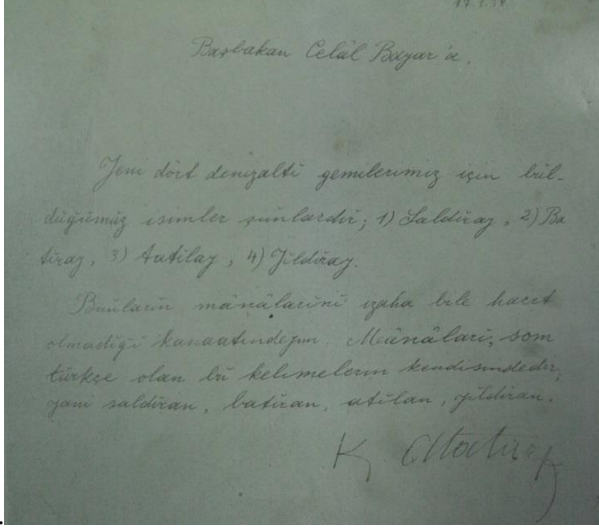 Başbakan Celâl Bayar'a.
Yeni dört denizaltı gemilerimiz için bul-
duğumuz isimler şunlardır; 1) Saldıray, 2) Ba
tıray, 3) Atılay, 4) Yıldıray.
Bunların mânâlarını izaha bile hacet
olmadığı kanaatındeyim. Mânâları, som
türkçe olan bu kelimelerin kendisindedir,
yani saldıran, batıran, atılan, yıldıran.
K. Atatürk